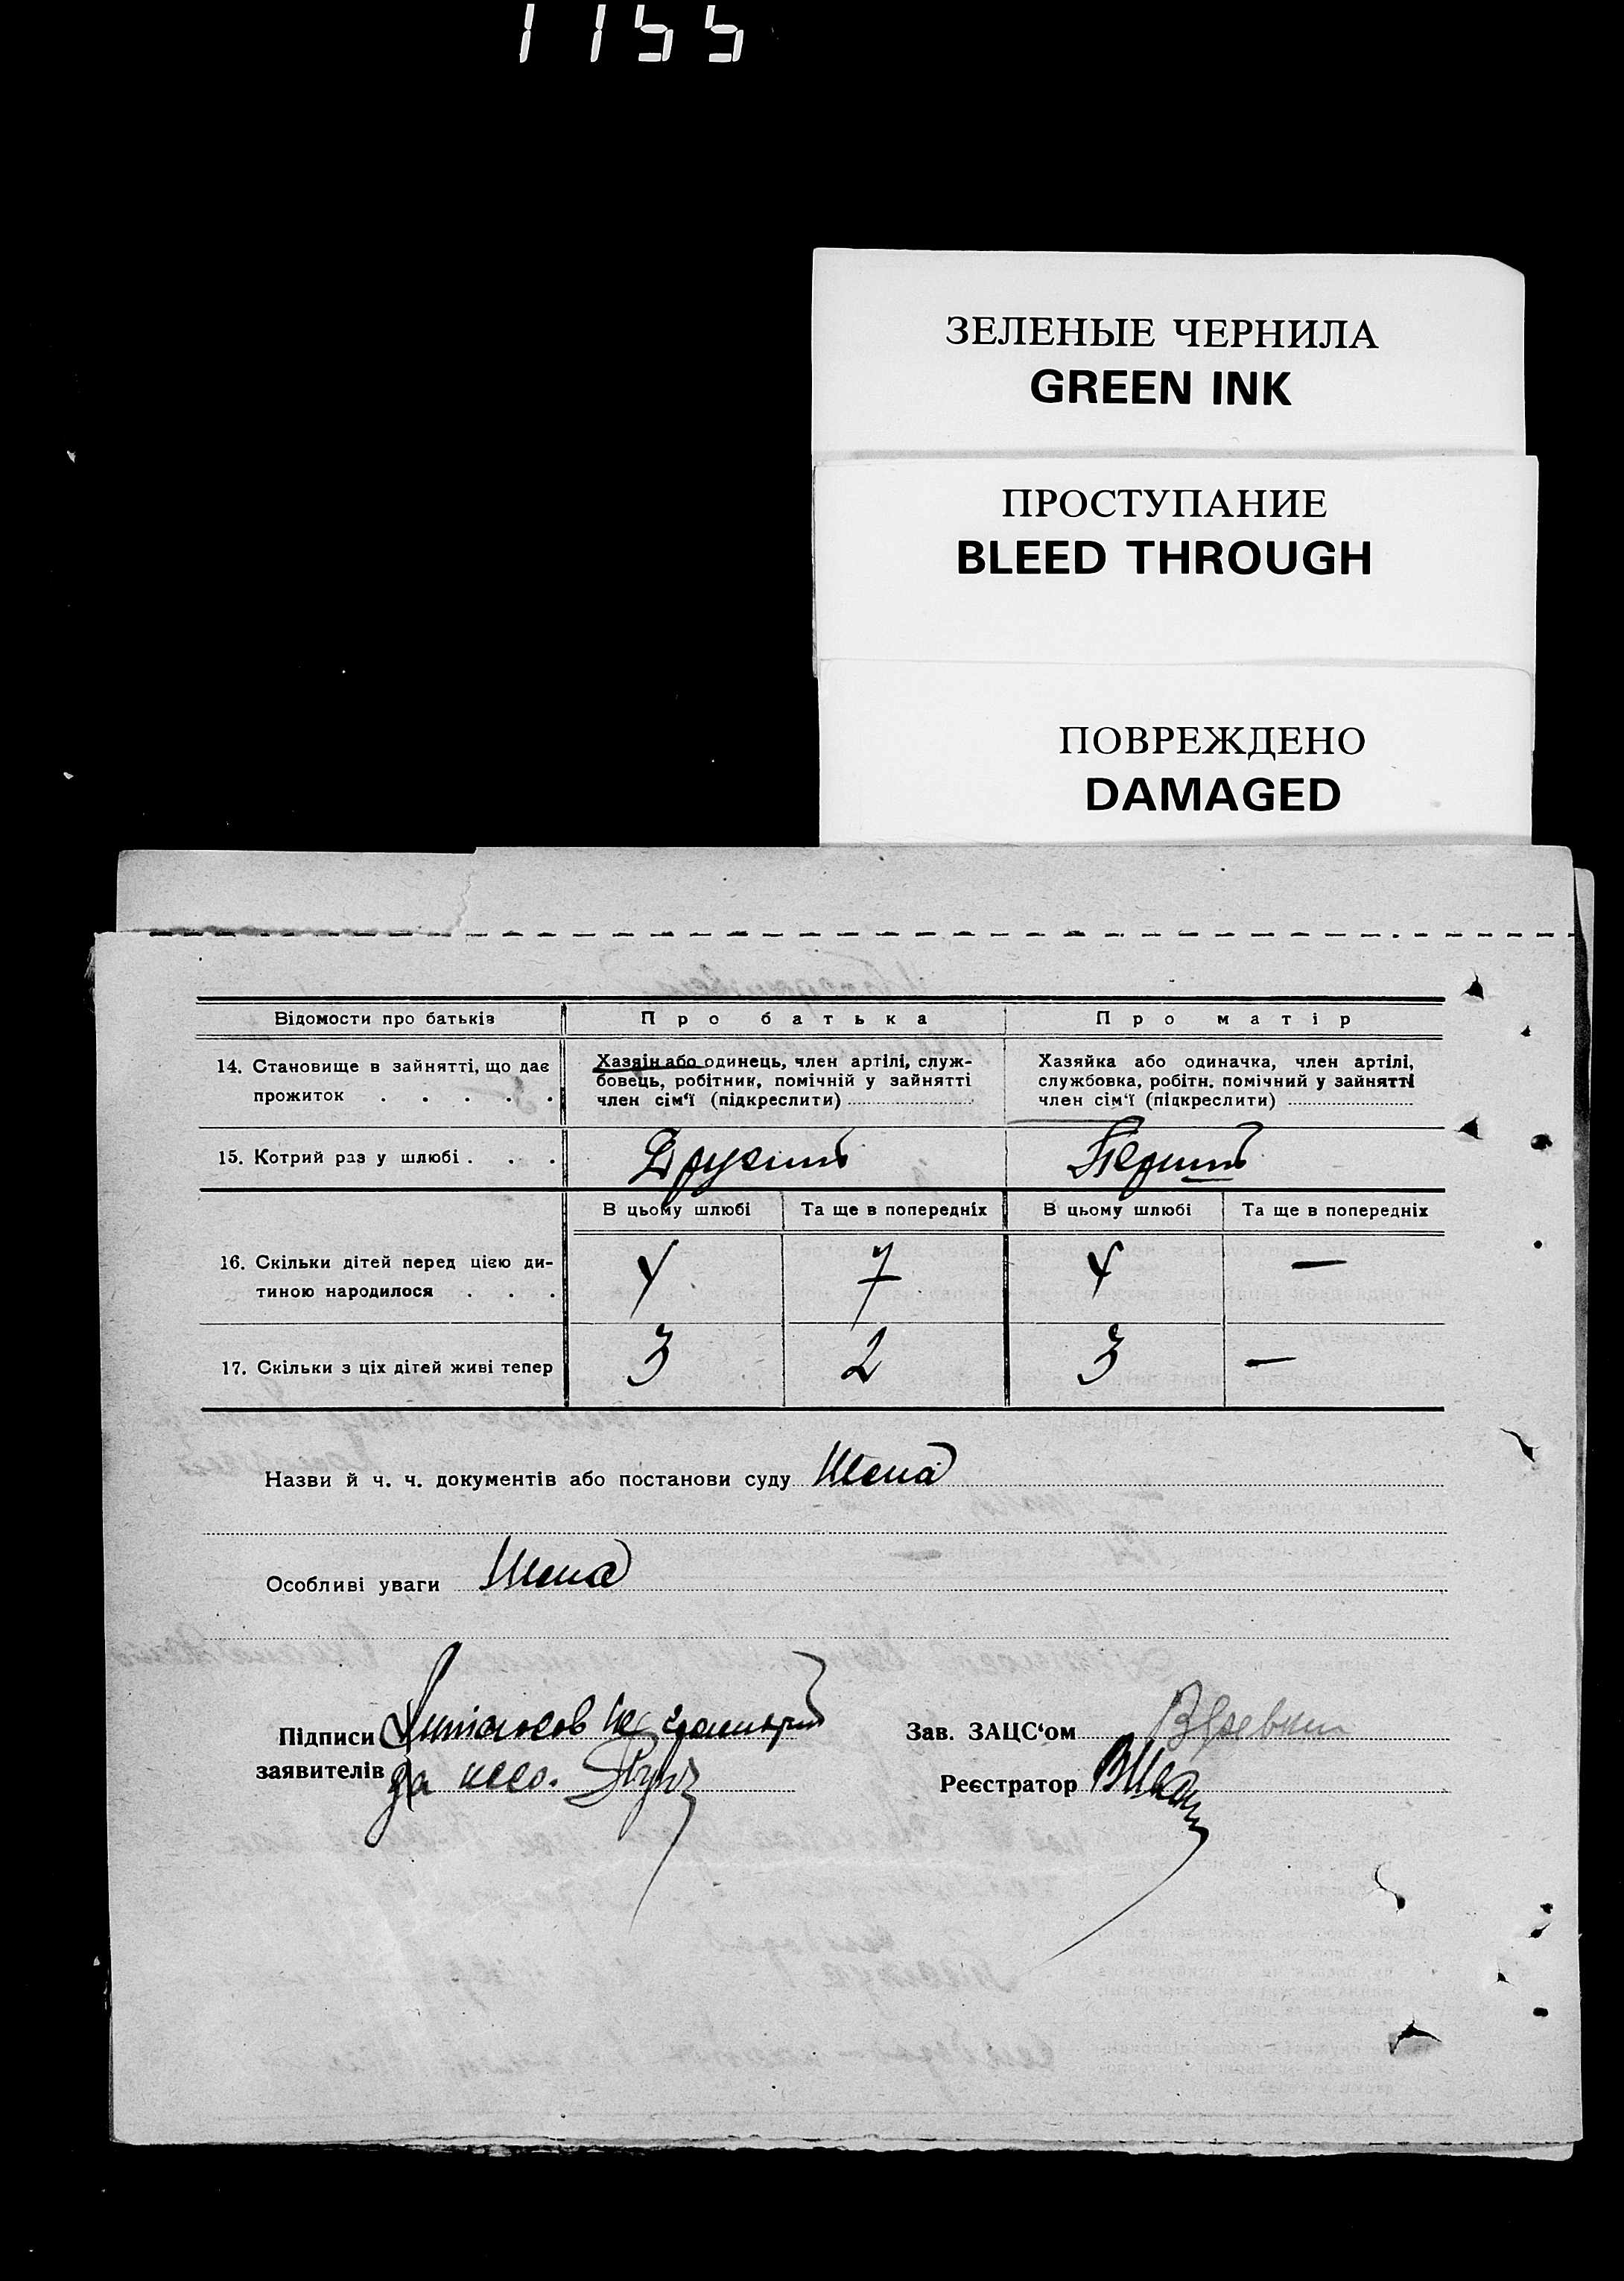 1155
ЗЕЛЕНЫЕ ЧЕРНИЛА
GREEN INK
ПРОСТУПАНИЕ
BLEED THROUGH
ПОВРЕЖДЕНО
DAMAGED
Відомости про батьків
Про батька
Про матір
14. Становище в зайнятті, що дає
прожиток . . . . .
Хазяїн або одинець, член артілі, служ-
бовець, робітник, помічній у зайнятті
член сім'ї (підкреслити)
Хазяйка або одиначка, член артілі,
службовка, робітн. помічний у зайнятті
член сім'ї (підкреслити)
15. Котрий раз у шлюбі . . .
Другий
Перший
В цьому шлюбі
Та ще в попередніх
В цьому шлюбі
Та ще в попередніх
16. Скільки дітей перед цією ди-
тиною народилося . . .
4
7
4
—
17. Скільки з ціх дітей живі тепер
3
2
3
—
Назви й ч. ч. документів або постанови суду Нема
Особливі уваги Нема
Підписи
заявителів
за него.
Зав. ЗАЦС'ом
Реєстратор